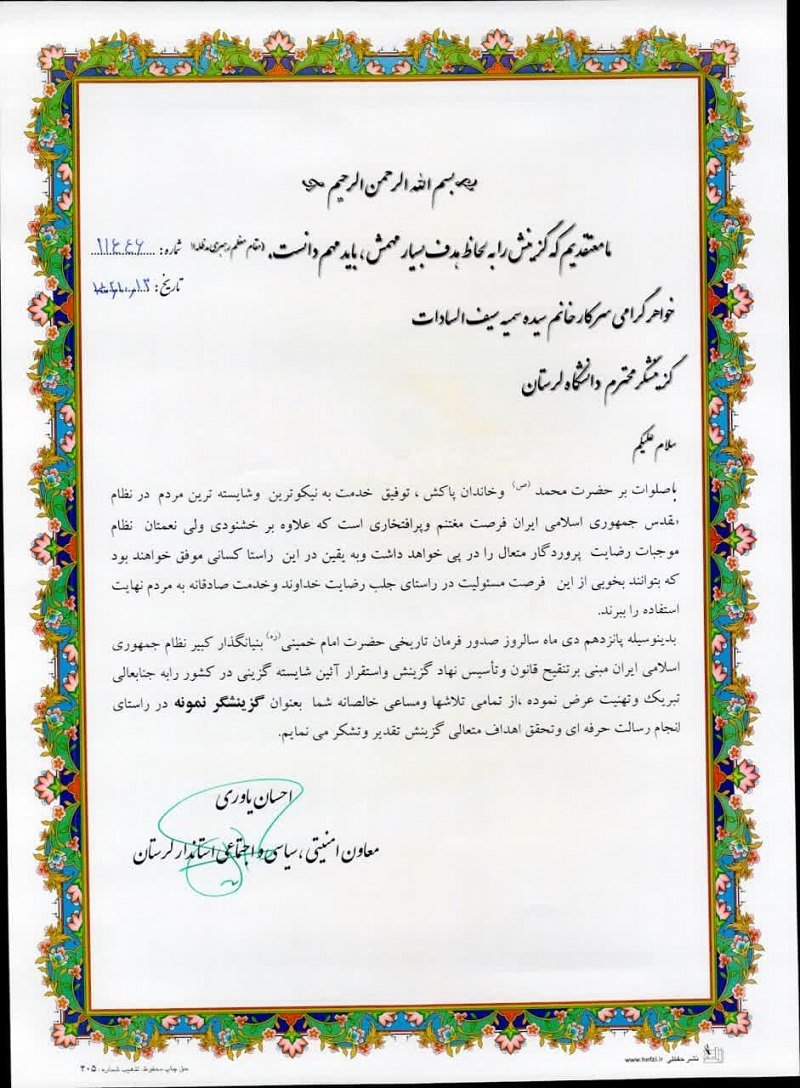 بسم الله الرحمن الرحیم
ما معتقدیم که گزینش را به لحاظ هدف بسیار مهمش، باید مهم دانست. (مقام معظم رهبری مدظله)
شماره:
تاریخ:
خواهر گرامی سرکار خانم سیده سمیه سیف السادات
گزینشگر محترم دانشگاه لرستان
سلام علیکم
باصلوات بر حضرت محمد (ص) وخاندان پاکش ، توفیق خدمت به نیکوترین وشایسته ترین مردم در نظام
مقدس جمهوری اسلامی ایران فرصت مغتنم وپرافتخاری است که علاوه بر خشنودی ولی نعمتان نظام
موجبات رضایت پروردگار متعال را در پی خواهد داشت وبه یقین در این راستا کسانی موفق خواهند بود
که بتوانند بخوبی از این فرصت مسئولیت در راستای جلب رضایت خداوند وخدمت صادقانه به مردم نهایت
استفاده را ببرند.
بدینوسیله پانزدهم دی ماه سالروز صدور فرمان تاریخی حضرت امام خمینی(ره) بنیانگذار کبیر نظام جمهوری
اسلامی ایران مبنی برتنقیح قانون وتأسیس نهاد گزینش واستقرار آئین شایسته گزینی در کشور رابه جنابعالی
تبریک وتهنیت عرض نموده ،از تمامی تلاشها ومساعی خالصانه شما بعنوان گزینشگر نمونه در راستای
انجام رسالت حرفه ای وتحقق اهداف متعالی گزینش تقدیر وتشکر می نمایم.
احسان یاوری
معاون امنیتی ، سیاسی و اجتماعی استاندار لرستان
نشر حفظی www.hefzi.ir
حق چاپ محفوظ. تذهیب شماره: ۴۰۵